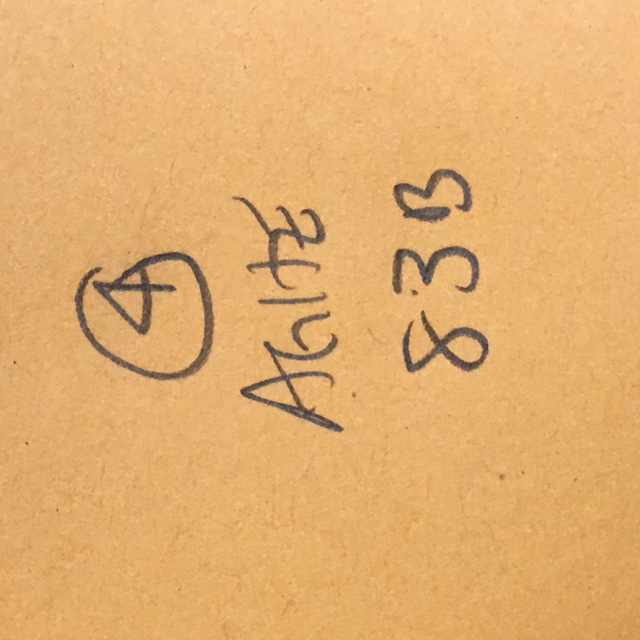 4
AGITE
83B